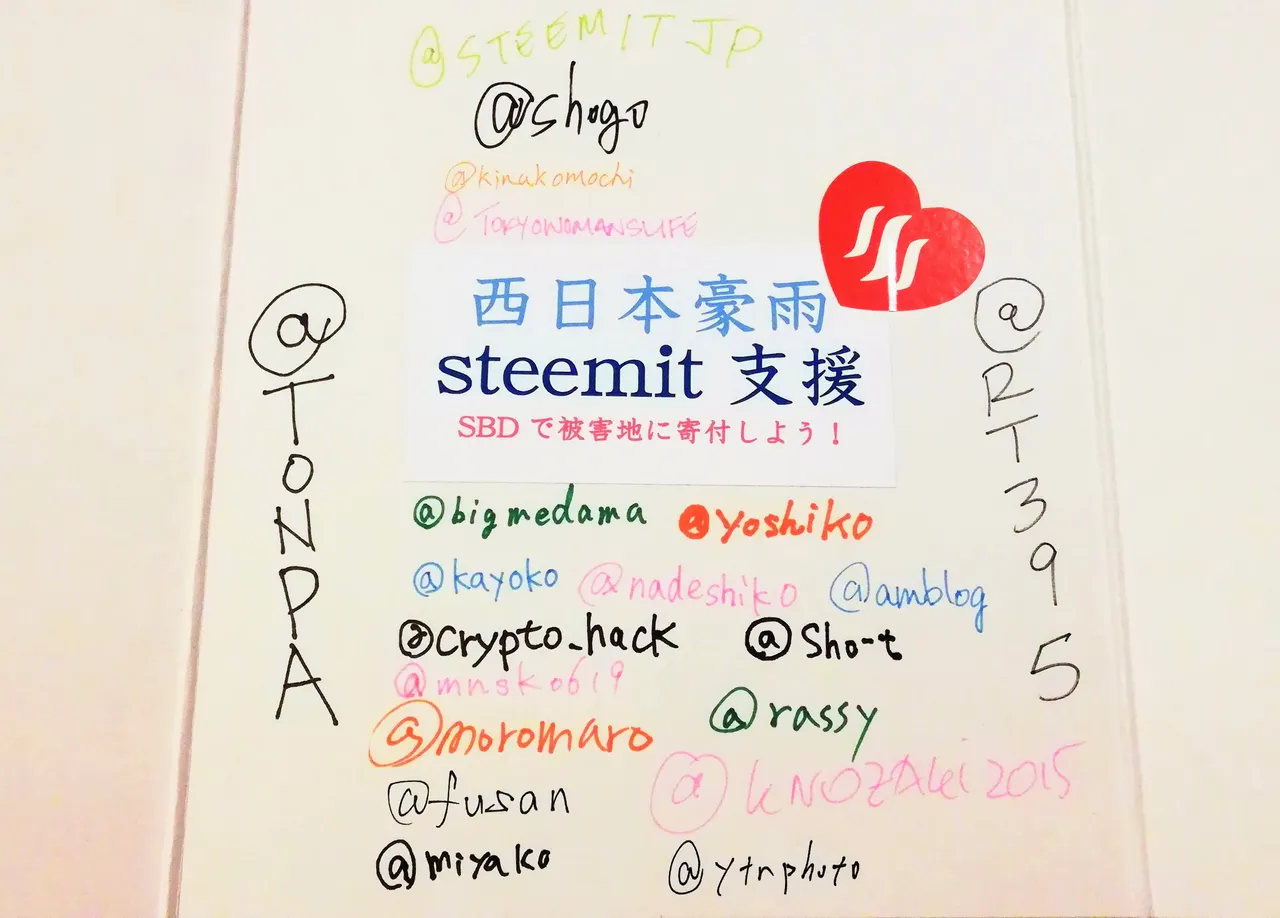 @STEEMITJP
@shogo
@kinakomochi
@TOKYOWOMANSLIFE
西日本豪雨
steemit 支援
SBDで被害地に寄付しよう！
@TONPA
@RT395
@bigmedama @yoshiko
@kayoko @nadeshiko @amblog
@crypto_hack @sho-t
@mnsk0619
@rassy
@moromaro
@KNOZAKi2015
@fusan
@miyako @ytnphoto